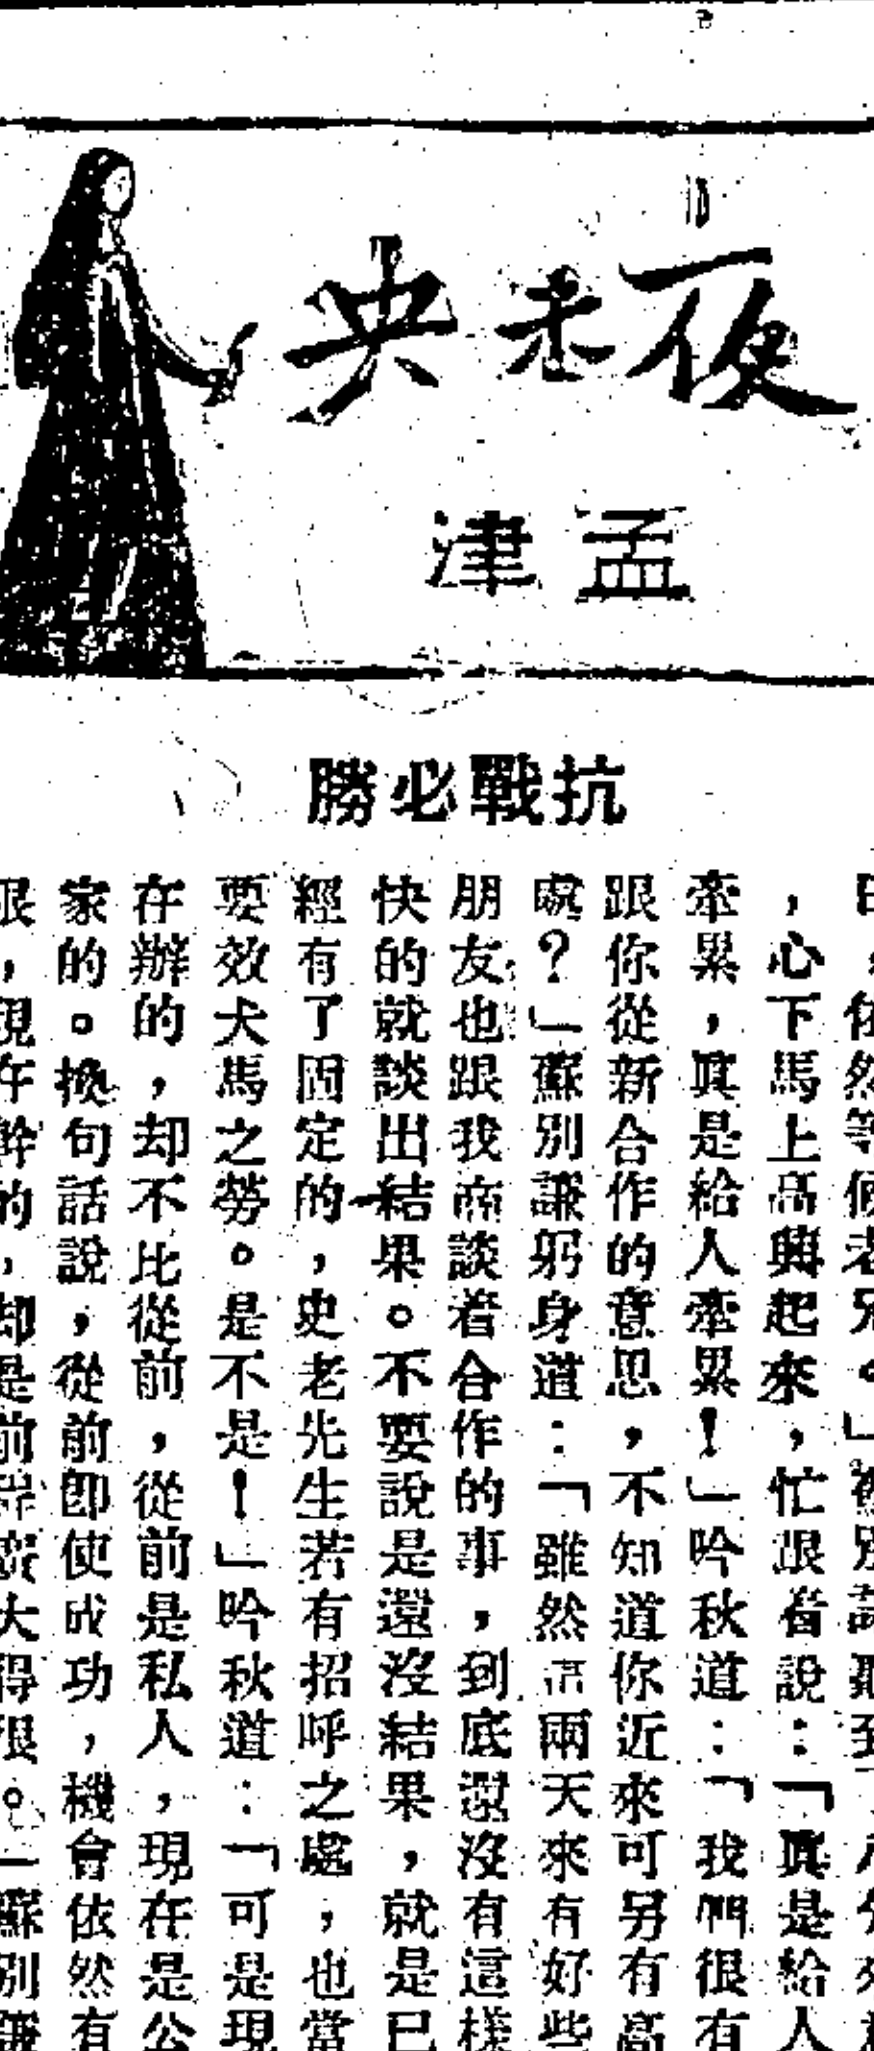 夜未央
孟津
抗戰必勝
，心下馬上高興起來，忙跟着說：「眞是給人
牽累，眞是給人牽累！」吟秋道：「我們很有
跟你從新合作的意思，不知道你近來可另有高
處？」蘇別謙躬身道：「雖然這兩天來有好些
朋友也跟我商談着合作的事，到底還沒有這樣
快的就談出結果。不要說是還沒結果，就是已
經有了固定的，史老先生若有招呼之處，也當
要效犬馬之勞。是不是！」吟秋道：「可是現
在辦的，却不比從前，從前是私人，現在是公
家的。換句話說，從前卽使成功，機會依然有